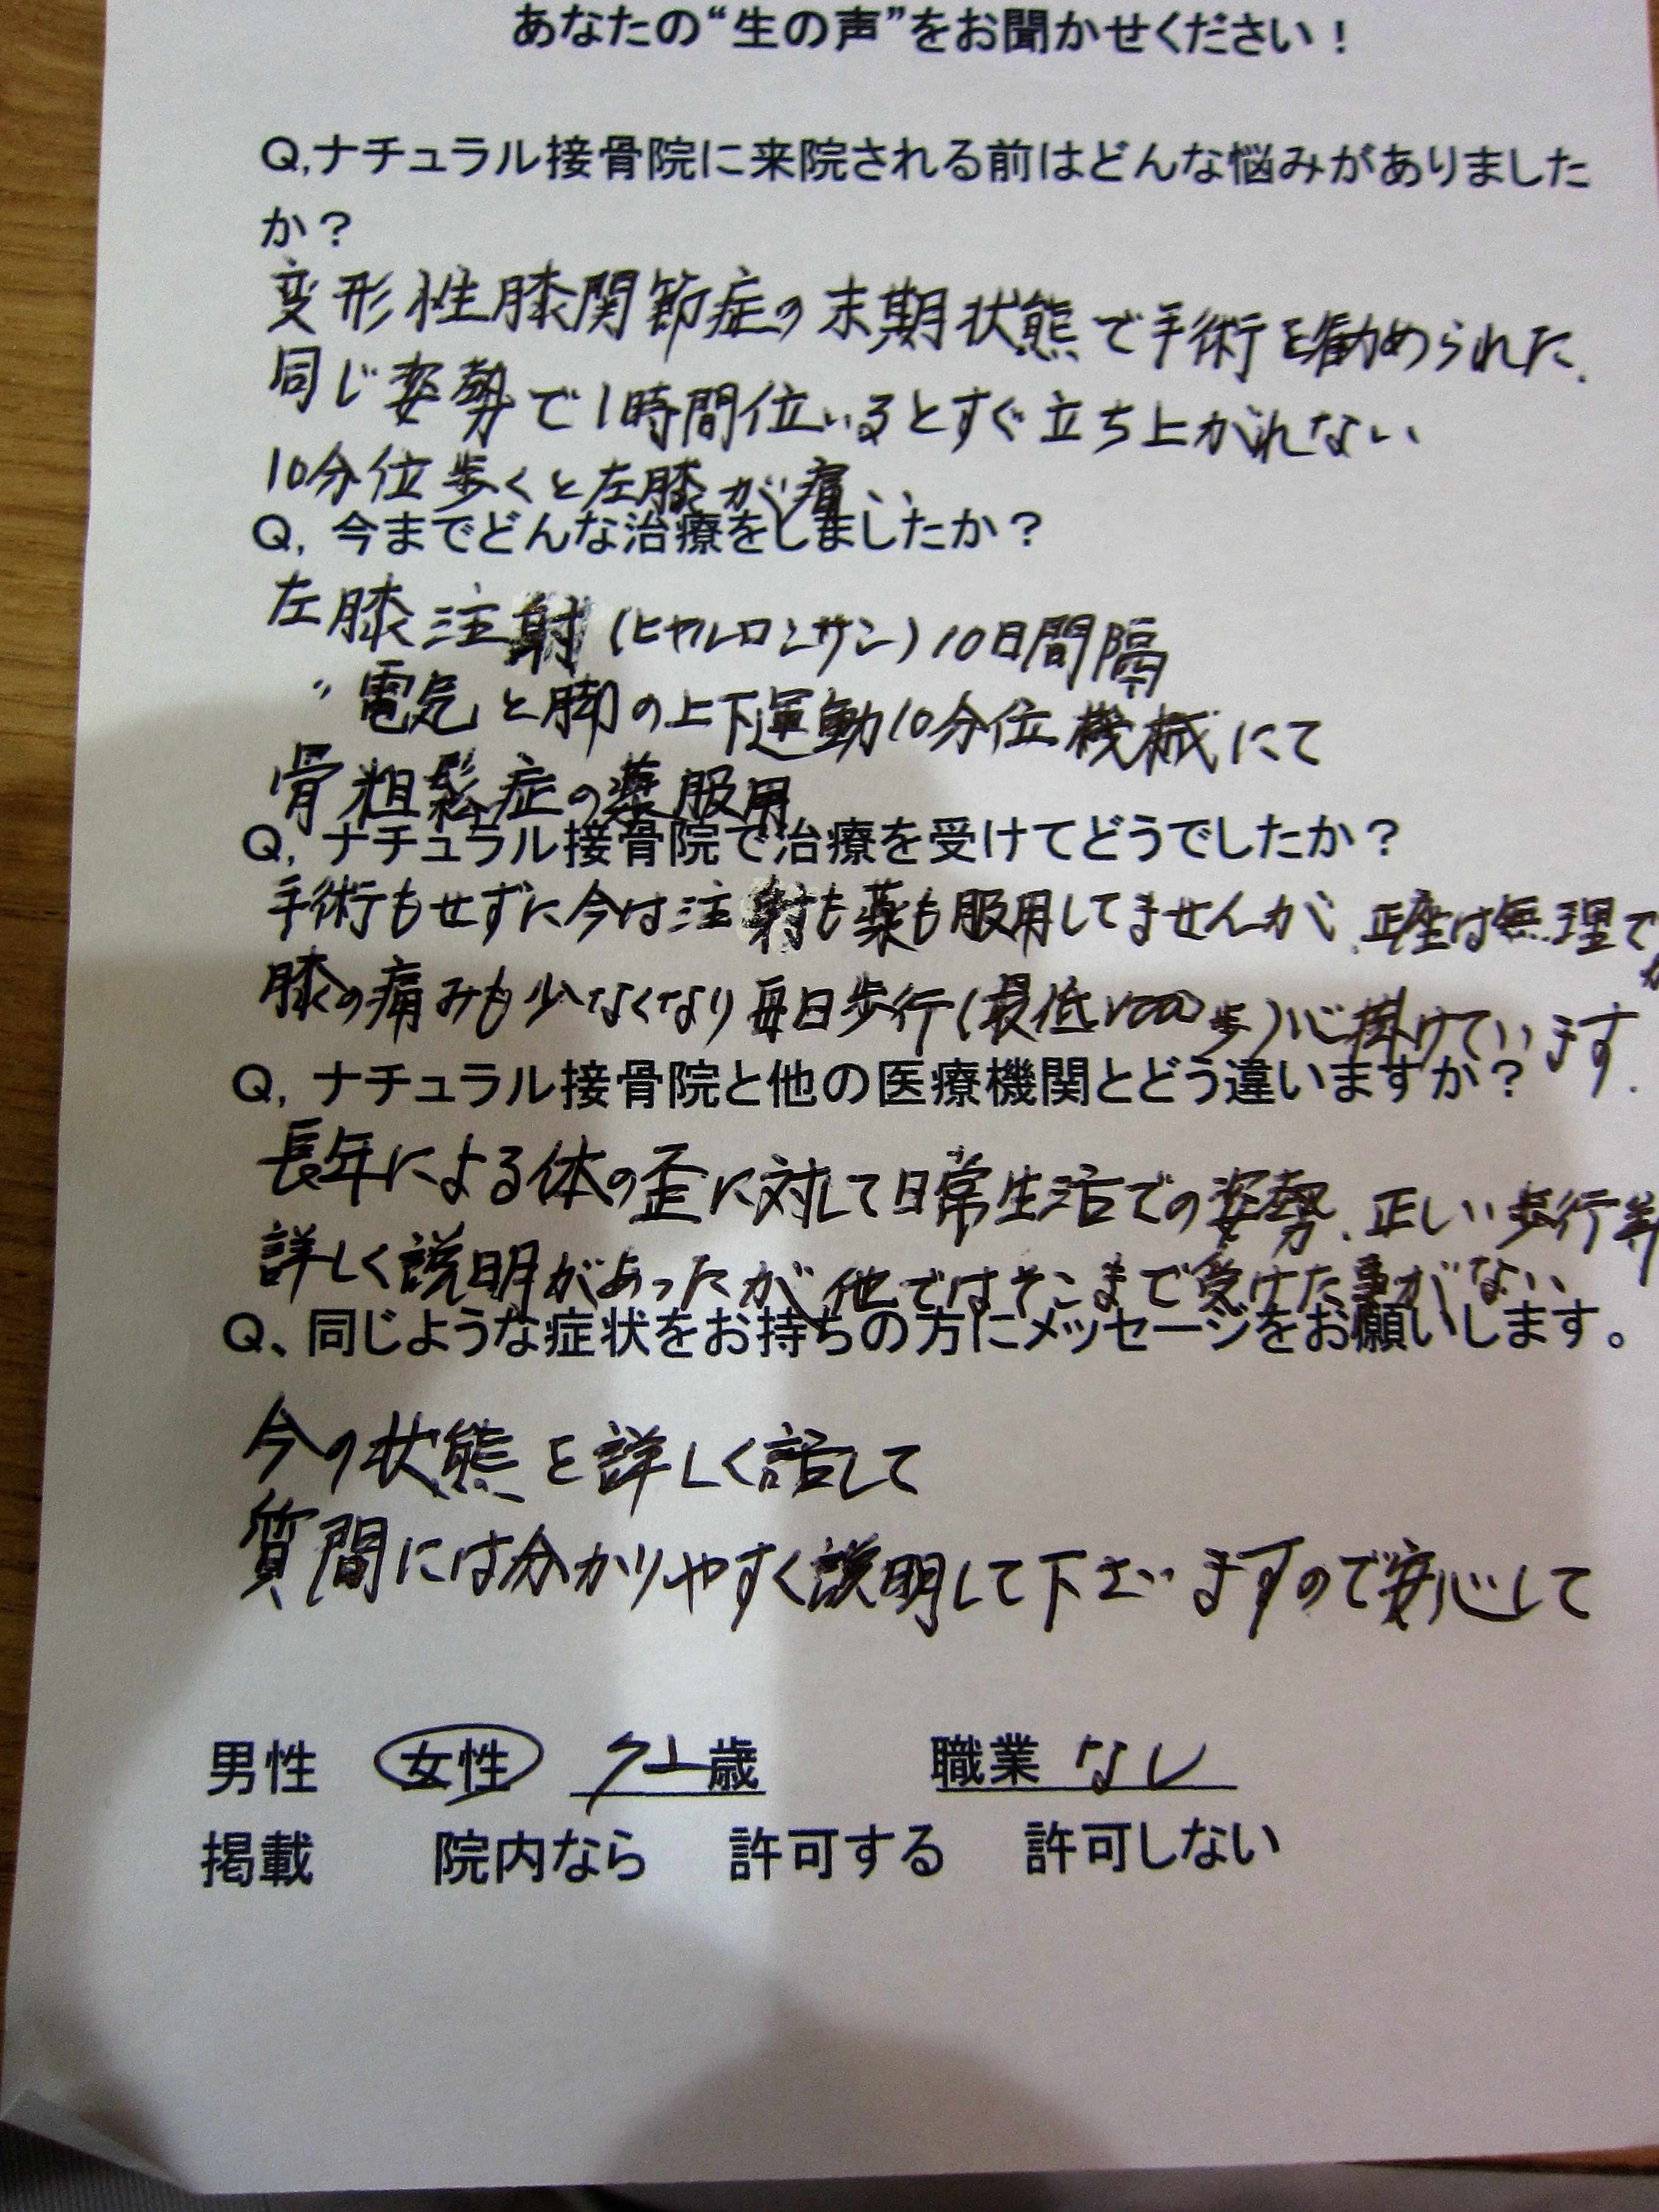 あなたの“生の声”をお聞かせください！
Q,ナチュラル接骨院に来院される前はどんな悩みがありました
か？
変形性膝関節症の末期状態で手術を勧められた.
同じ姿勢で1時間位いるとすぐ立ち上がれない
10分位歩くと左膝が痛い
Q, 今までどんな治療をしましたか？
左膝注射(ヒヤルロンサン)10日間隔
〃電気と脚の上下運動10分位機械にて
骨粗鬆症の薬服用
Q, ナチュラル接骨院で治療を受けてどうでしたか？
手術もせずに今は注射も薬も服用してませんが、正座は無理で
膝の痛みも少なくなり毎日歩行(最低 歩)心掛けています.
Q, ナチュラル接骨院と他の医療機関とどう違いますか？
長年による体の歪に対して日常生活での姿勢、正しい歩行等
詳しく説明があったが他ではそこまで受けた事がない
Q、同じような症状をお持ちの方にメッセージをお願いします。
今の状態を詳しく話して
質問には分かりやすく説明して下さいますので安心して
男性 女性 歳 職業 なし
掲載 院内なら 許可する 許可しない